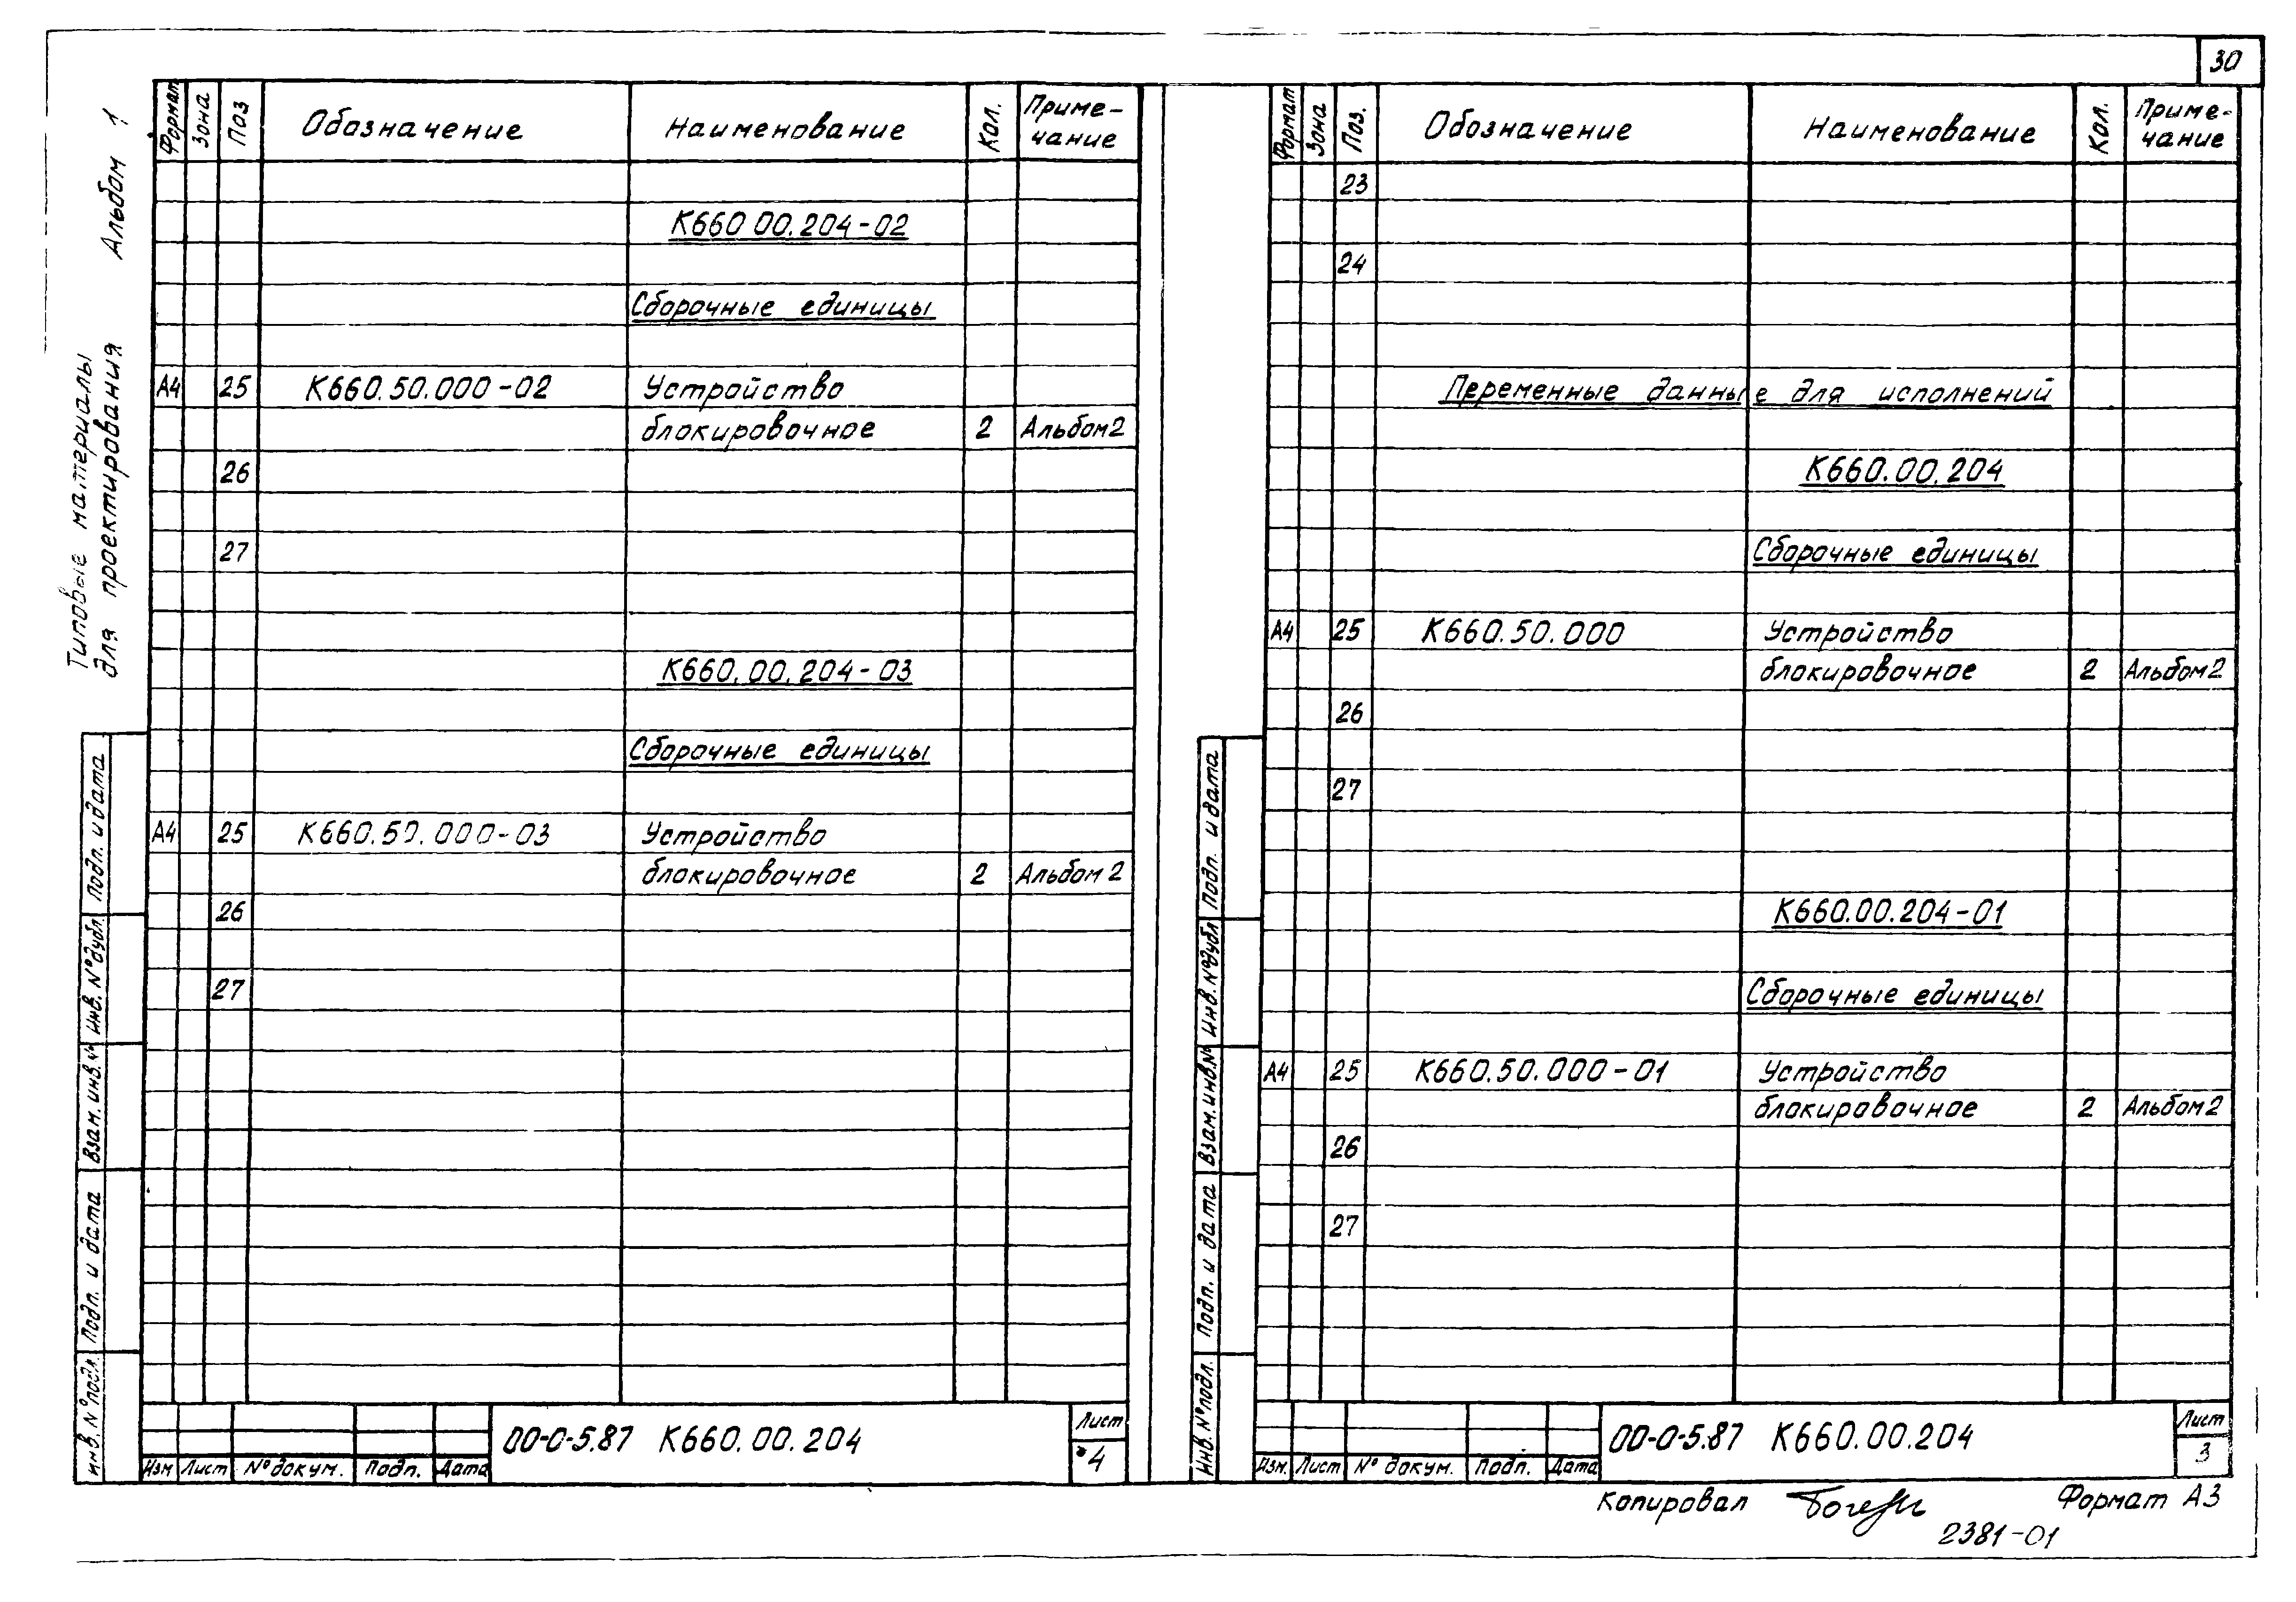 30
Альбом 1
Типовые материалы
для проектирования
Формат Зона Поз Обозначение Наименование Кол. Приме-
чание
К660 00.204-02
Сборочные единицы
А4 25 К660.50.000-02 Устройство
блокировочное 2 Альбом 2
26
27
К660.00.204-03
Сборочные единицы
А4 25 К660.50.000-03 Устройство
блокировочное 2 Альбом 2
26
27
Подп. и дата
Инв. № дубл.
Взам. инв. №
Подп. и дата
Инв. № подл.
Изм Лист № докум. Подп. Дата
00-0-5.87 К660.00.204
Лист
4
Формат Зона Поз. Обозначение Наименование Кол. Приме-
чание
23
24
Переменные данные для исполнений
К660.00.204
Сборочные единицы
А4 25 К660.50.000 Устройство
блокировочное 2 Альбом 2
26
27
К660.00.204-01
Сборочные единицы
А4 25 К660.50.000-01 Устройство
блокировочное 2 Альбом 2
26
27
Подп. и дата
Инв. № дубл
Взам. инв. №
Подп. и дата
Инв. № подл.
Изм. Лист № докум. Подп. Дата
00-0-5.87 К660.00.204
Лист
3
Копировал Формат А3
2381-01